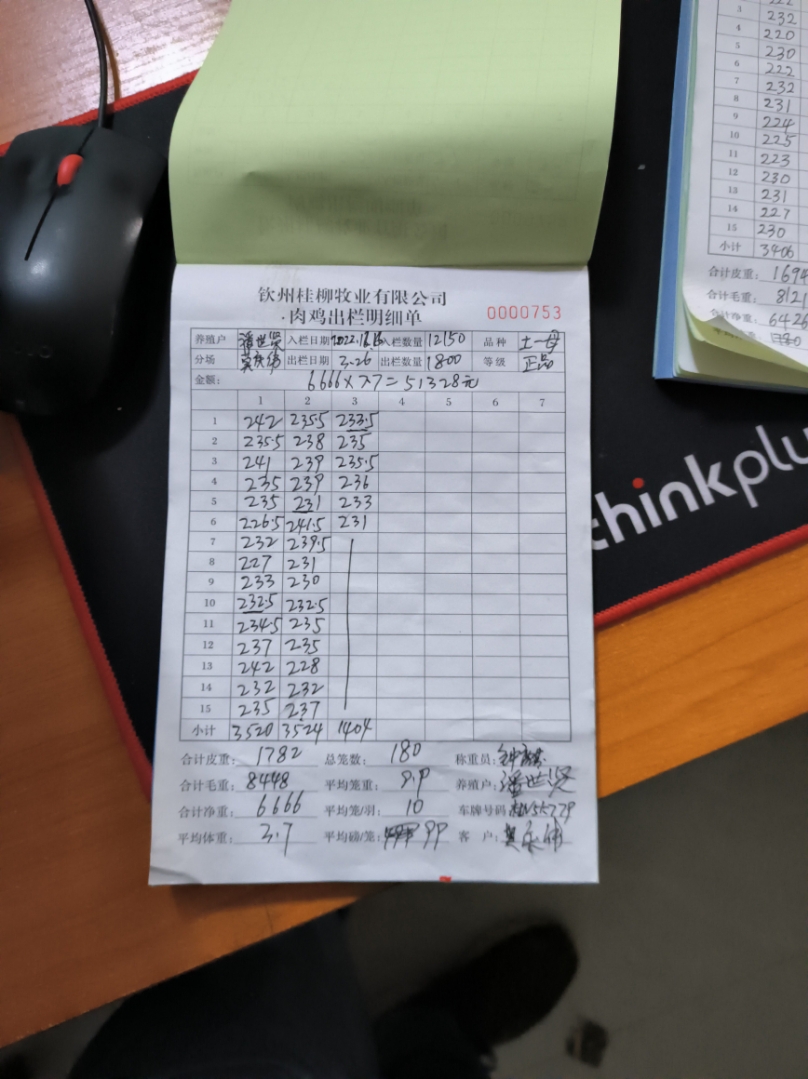 钦州桂柳牧业有限公司
肉鸡出栏明细单 0000753
养殖户 潘世贤 入栏日期 2022.12. 入栏数量 12150 品种 土一母
分场 莫庆伟 出栏日期 3.26 出栏数量 1800 等级 正品
金额: 6666×7.7=51328元
1 2 3 4 5 6 7
1 242 235.5 233.5
2 235.5 238 235
3 241 239 235.5
4 235 239 236
5 235 231 233
6 226.5 241.5 231
7 232 239.5
8 227 231
9 233 230
10 232.5 232.5
11 234.5 235
12 237 235
13 242 228
14 232 232
15 235 237
小计 3520 3524 1404
合计皮重: 1782 总笼数: 180 称重员:
合计毛重: 8448 平均笼重: 9.9 养殖户: 潘世贤
合计净重: 6666 平均笼/羽: 10 车牌号码
平均体重: 3.7 平均磅/笼: 99 客户: 莫庆伟
222
3 232
4 220
5 230
6 222
7 232
8 231
9 224
10 225
11 223
12 230
13 231
14 227
15 230
小计 3406
合计皮重: 1694
合计毛重: 8121
合计净重: 6426
thinkplu